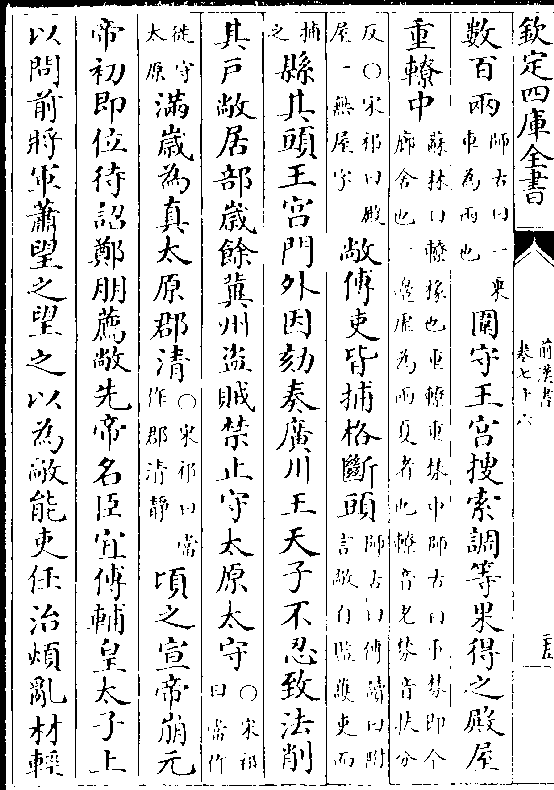 欽定四庫全書
前漢書
卷七十六
數百兩師古曰一乘
車為兩也圍守王宮搜索調等果得之殿屋
重轑中蘇林曰轑椽也重轑重棼中師古曰棼即今
廊舍也一邊虛為兩夏者也轑音老棼音扶分
反○宋祁曰殿
屋一無屋字敞傅吏皆捕格斷頭師古曰傅讀曰附
言敞自監護吏而
捕
之縣其頭王宮門外因劾奏廣川王天子不忍致法削
其戶敞居部歲餘冀州盜賊禁止守太原太守○宋祁
曰當作
徙守
太原滿歲為真太原郡清○宋祁曰當
作郡清靜頃之宣帝崩元
帝初即位待詔鄭朋薦敞先帝名臣宜傅輔皇太子上
以問前將軍蕭望之望之以為敞能吏任治煩亂材輕